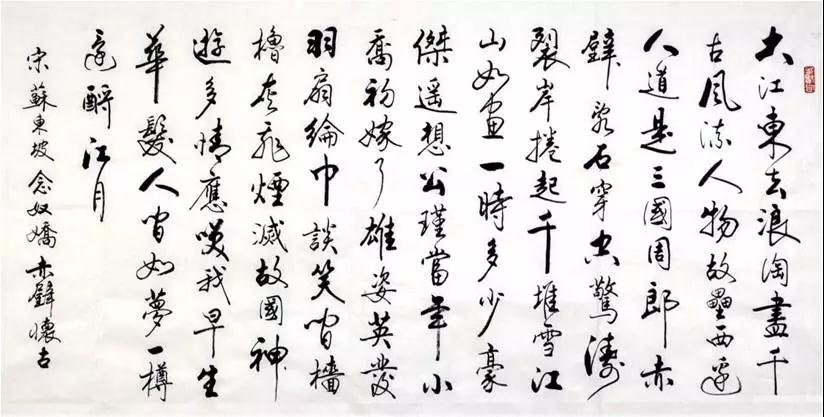 大江東去浪淘盡千
古風流人物故壘西邊
人道是三國周郎赤
壁亂石穿空驚濤
裂岸捲起千堆雪江
山如畫一時多少豪
傑遥想公瑾當年小
喬初嫁了雄姿英發
羽扇綸巾談笑間檣
櫓灰飛煙滅故國神
遊多情應笑我早生
華髮人間如夢一樽
還酹江月
宋蘇東坡念奴嬌赤壁懷古